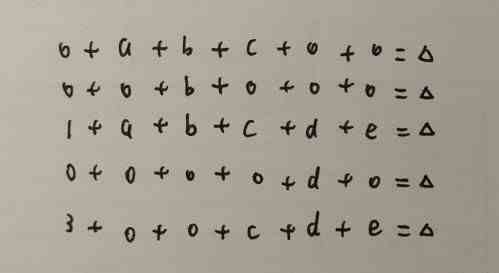 0 + a + b + c + 0 + 0 = Δ
0 + 0 + b + 0 + 0 + 0 = Δ
1 + a + b + c + d + e = Δ
0 + 0 + 0 + 0 + d + 0 = Δ
3 + 0 + 0 + c + d + e = Δ